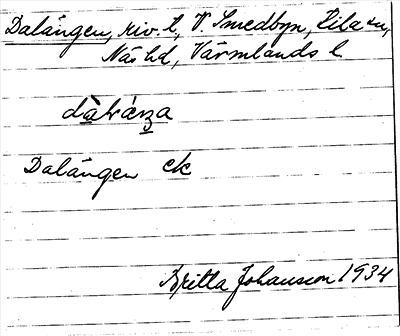 Dalängen, riv. t, V. Smedbyn, Lila sn,
Näs hd, Värmlands l
Dalängen ek
Britta Johansson 1934